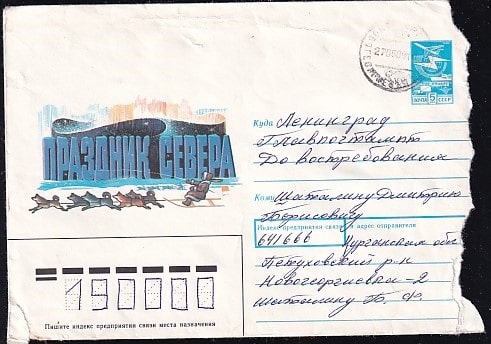 ПОЧТА 5 СССР
ПРАЗДНИК СЕВЕРА
Куда Ленинград
Главпочтампт
До востребования
Кому Шаталину Дмитрию
Борисовичу
Индекс предприятия связи и адрес отправителя
641666 Курганская обл
Петуховский р-н
Новогеоргиевка-2
Шаталину Б. Ф
190000
Пишите индекс предприятия связи места назначения